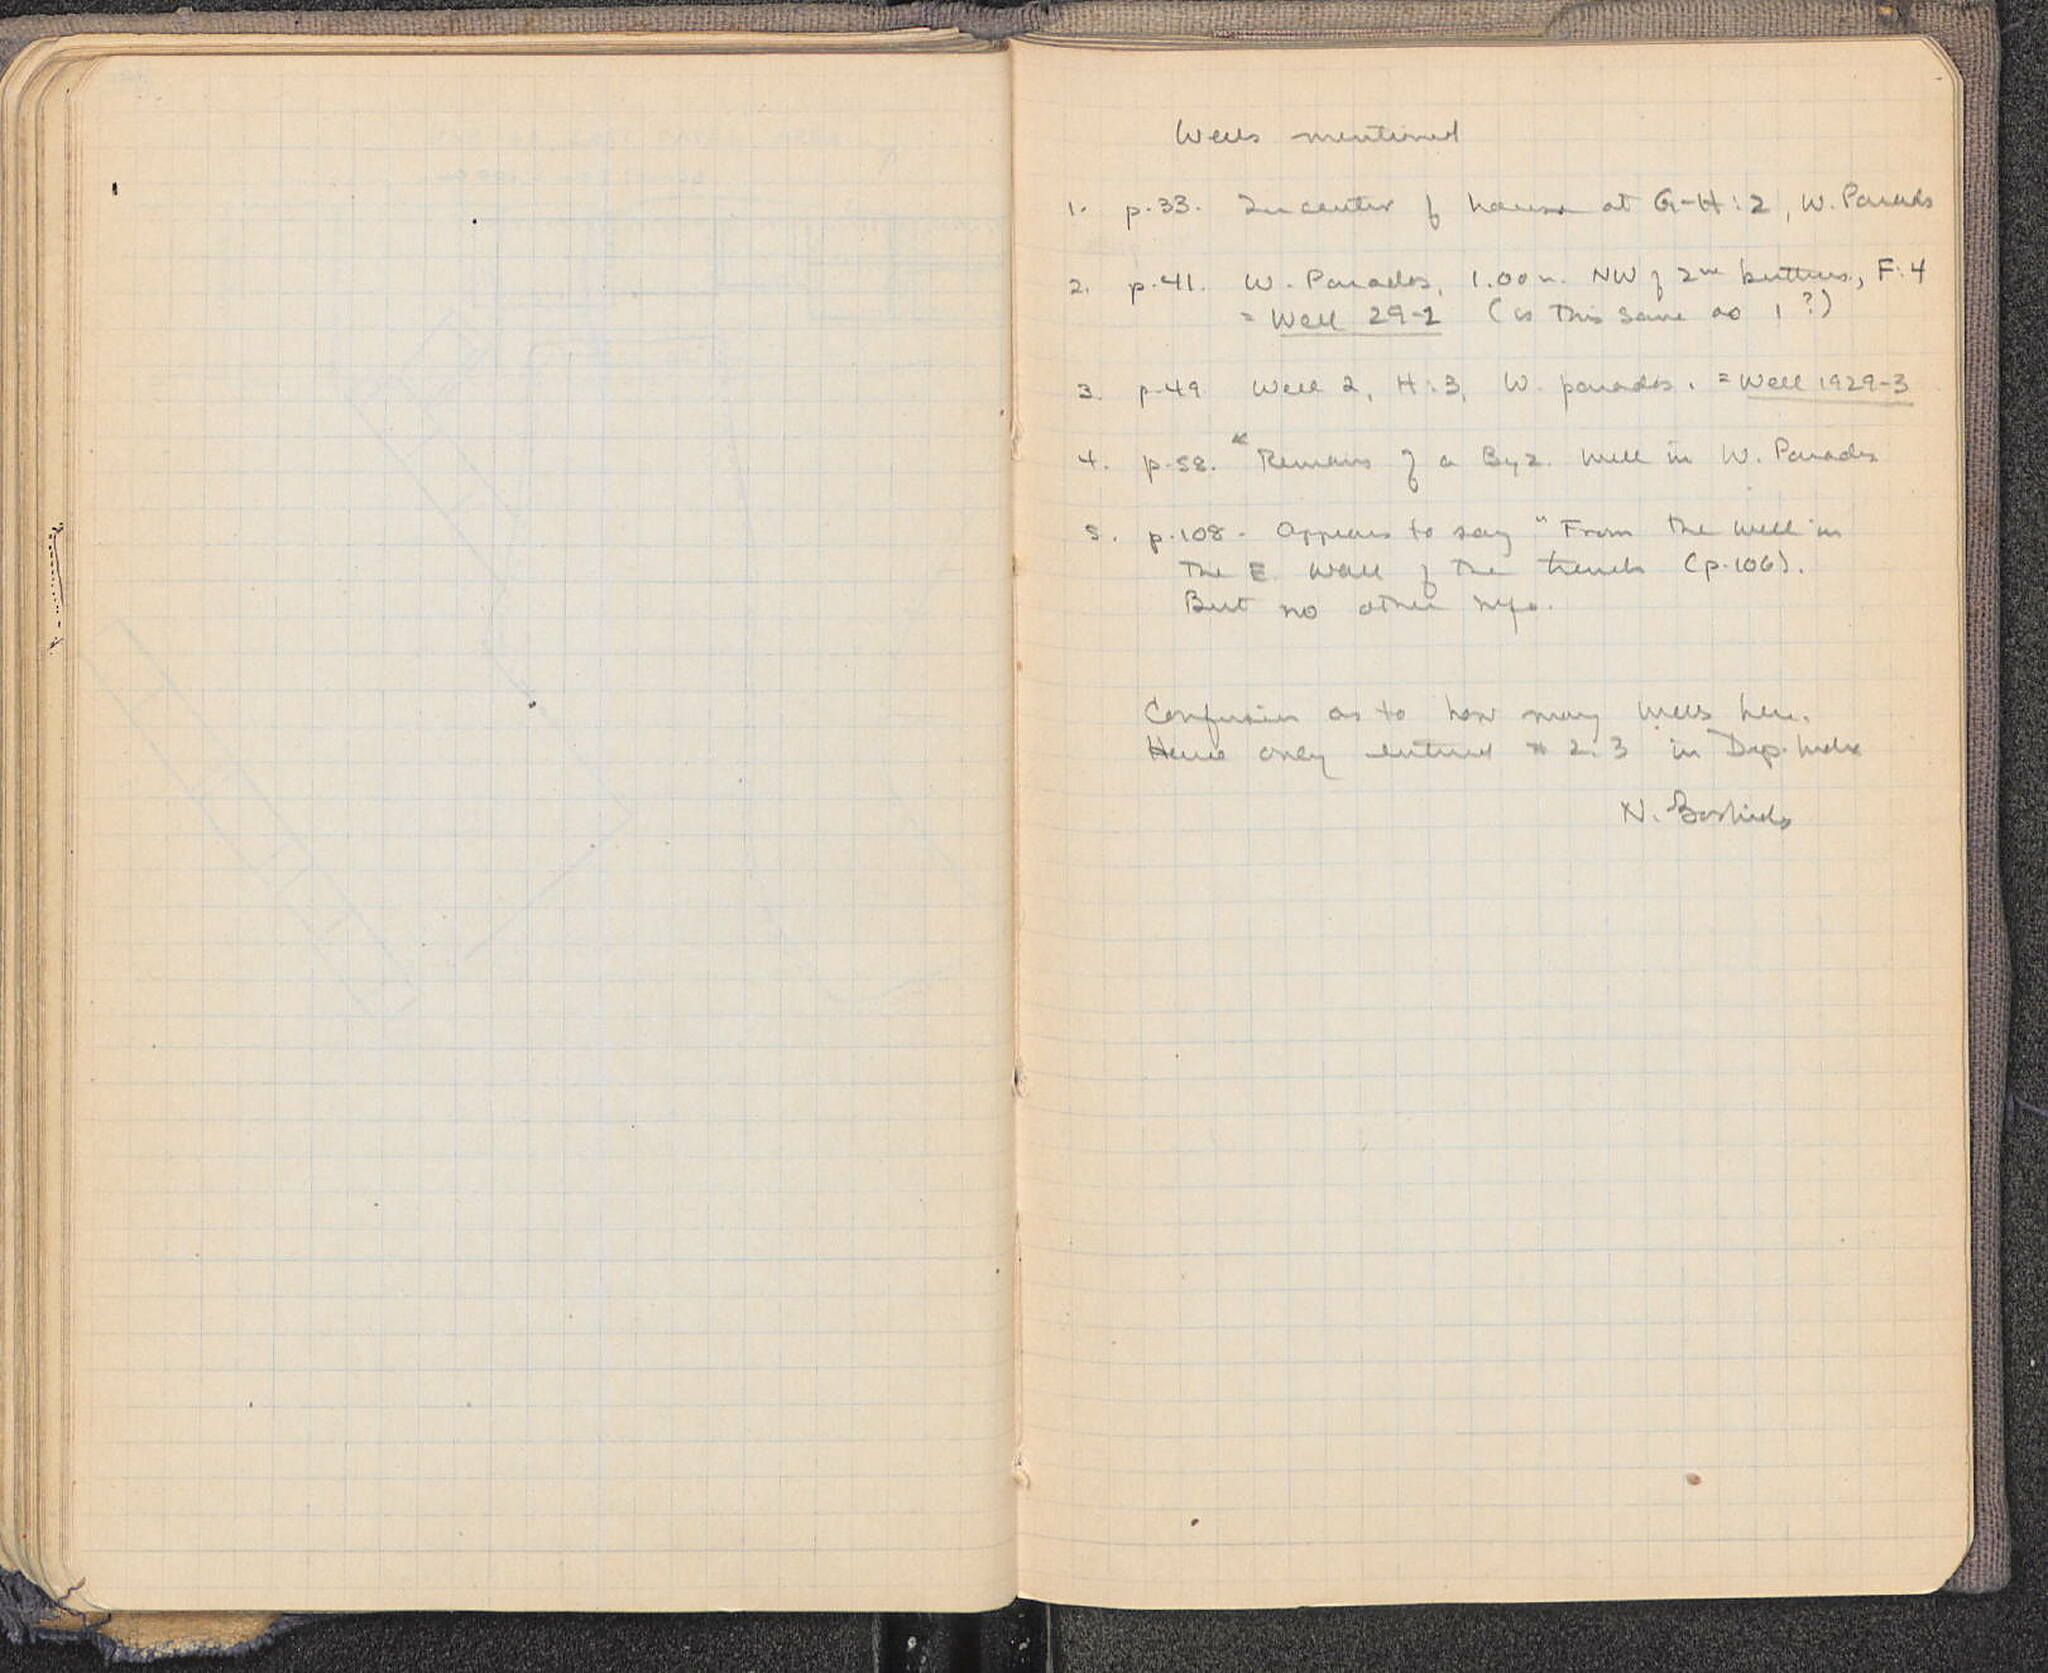 Wells mentioned
1. p.33. In center of house at G-H:2, W. Parados
2. p.41. W. Parados, 1.00 m. NW of 2nd buttress, F:4
= Well 29-2 (is this same as 1?)
3. p.49 Well 2, H:3, W. parados. = Well 1929-3
4. p.58. "Remains of a Byz. well in W. Parados
5. p.108. Appears to say "From the well in
the E. wall of the trench (p.106).
But no other info.
Confusion as to how many wells here.
Hence only entered # 2, 3 in Dep. Index
N. Bookidis